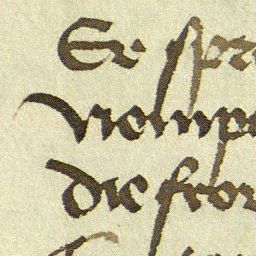 Er spr
niemp
die fro